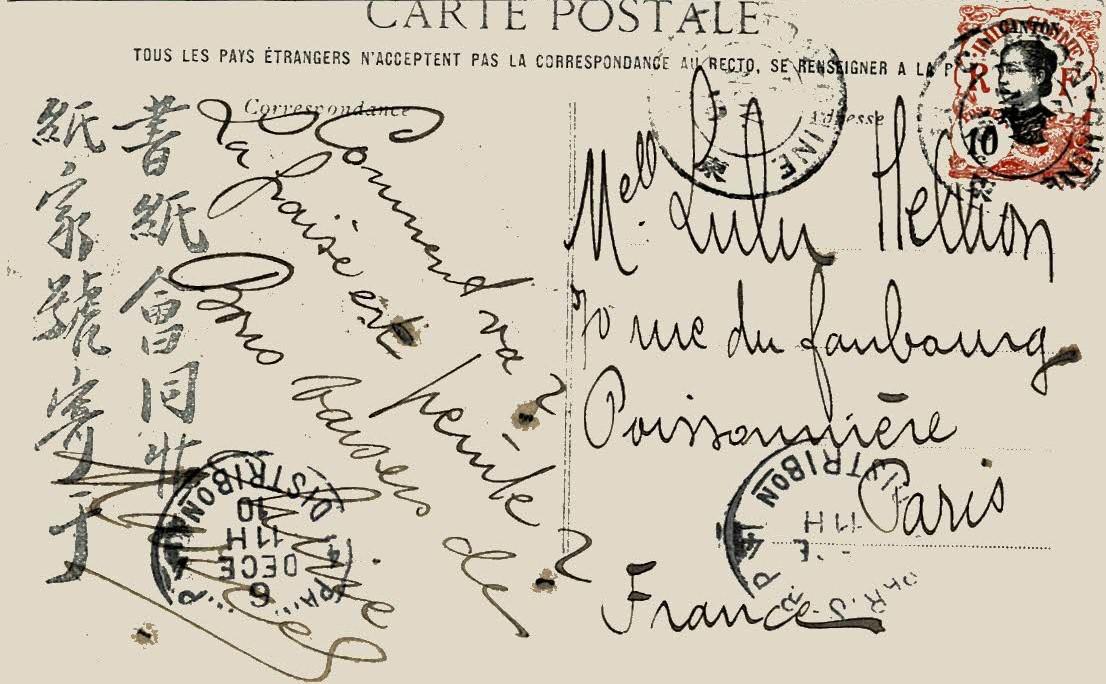 CARTE POSTALE
TOUS LES PAYS ÉTRANGERS N'ACCEPTENT PAS LA CORRESPONDANCE AU RECTO, SE RENSEIGNER A LA P
Correspondance
Adresse
書紙會同
紙家號寄于
Comment va
La fraise est petite ?
Bons baisers de
Melle Lulu Hellion
70 rue du faubourg
Poissonnière
Paris
France
CANTON
INDOCHINE
R F
10
CHINE
DISTRIBON
10
11H
6 DECE
DISTRIBON
11H